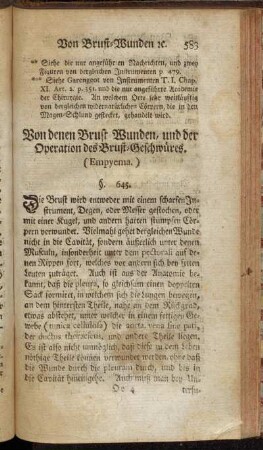 Von Brust-Wunden ꝛc. 583
** Siehe die nur angeführten Nachrichten, und zwey
Figuren von dergleichen Instrumenten p. 479.
** Siehe Garengeot von Instrumenten T. I. Chap.
XI. Art. 2. p. 151. und die nur angeführte Academie
der Chirurgie. An welchem Orte sehr weitläuftig
von dergleichen widernatürlichen Cörpern, die in den
Magen-Schlund gestecket, gehandelt wird.
Von denen Brust Wunden, und der
Operation des Brust-Geschwüres.
(Empyema.)
§. 645.
Die Brust wird entweder mit einem scharfen In-
strument, Degen, oder Messer gestochen, oder
mit einer Kugel, und andern harten stumpfen
Cörpern verwundet. Vielmahl gehet dergleichen Wunde
nicht in die Cavität, sondern äusserlich unter denen
Musculn, insonderheit unter dem pectorali auf de-
nen Ribben fort, welches vor andern sich bey fetten
Leuten zuträget. Auch ist aus der Anatomie be-
kannt, daß die pleura, so gleichsam einen doppelten
Sack formiret, in welchem sich die Lungen bewegen,
an dem hintersten Theile, nahe an dem Rückgrad,
etwas abstehet, unter welcher in einem fettigen Ge-
webe (tunica cellulosa) die aorta, vena sine pari,
der ductus thoracicus, und andere Theile liegen.
Es ist also nicht unmöglich, daß diese zu dem Leben
nöthige Theile können verwundet werden, ohne daß
die Wunde durch die pleuram durch, und bis in
die Cavität hineingehe. Auch muß man bey Un-
Oo 4 tersu-